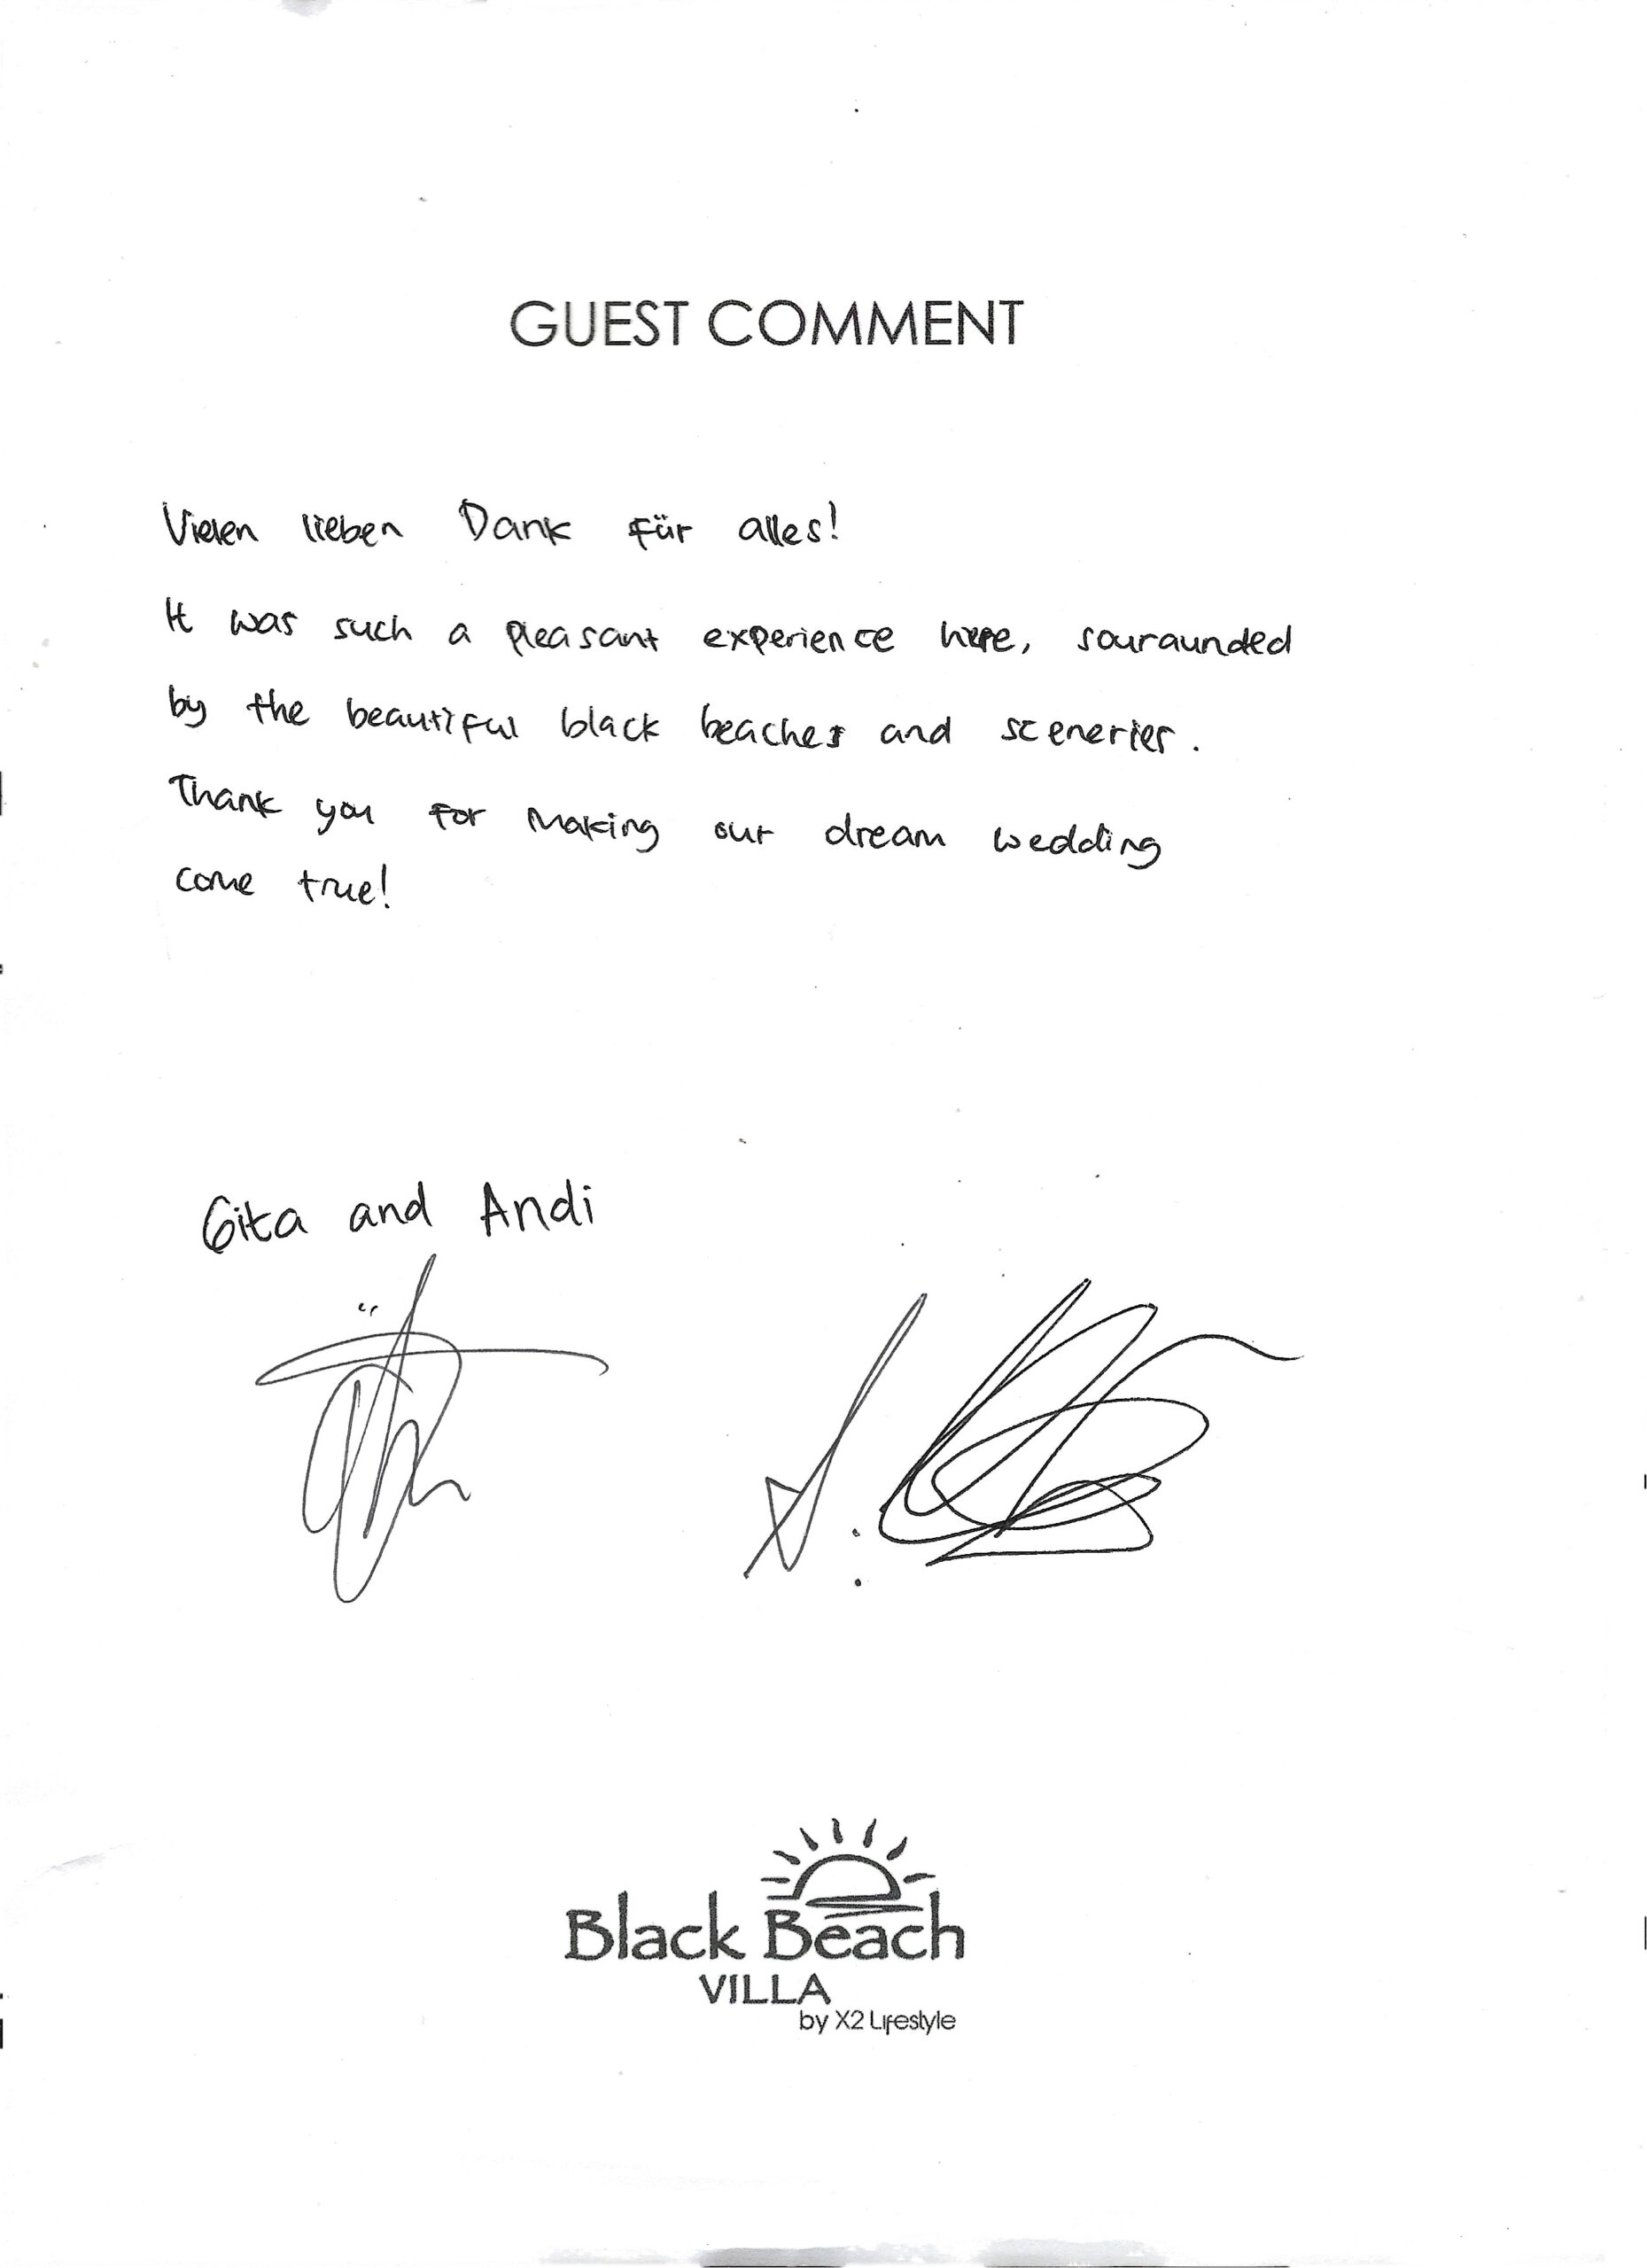 GUEST COMMENT
Vielen lieben Dank für alles!
It was such a pleasant experience here, souraunded
by the beautiful black beaches and sceneries.
Thank you for making our dream wedding
come true!
Gita and Andi
Black Beach
VILLA
by X2 Lifestyle